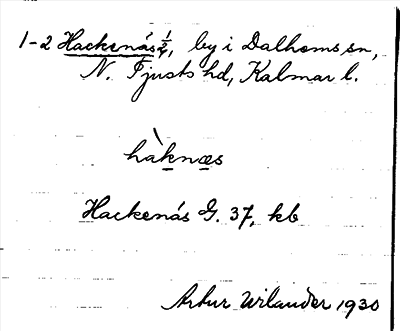 1-2 Hackenäs ½, by i Dalhems sn,
N. Tjusts hd, Kalmar l.
hàknæs
Hackenäs G. 37, kb
Artur Wilander 1930